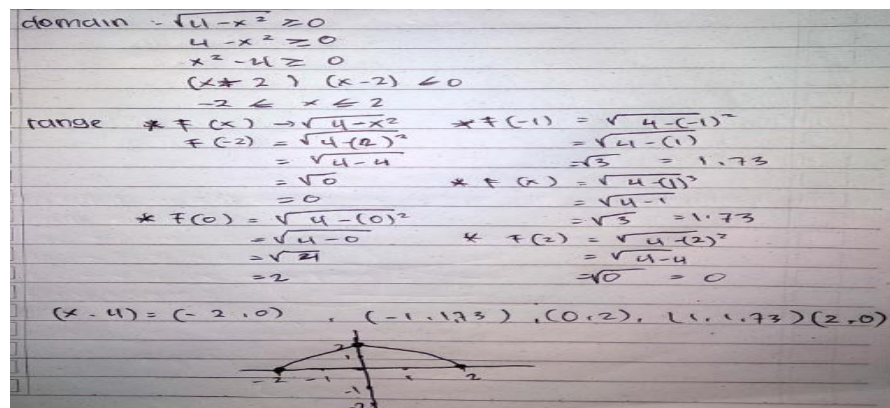 domain :- √4-x² ≥ 0
4-x² ≥ 0
x²-4 ≥ 0
(x+2) (x-2) ≤ 0
-2 ≤ x ≤ 2
range * F(x) → √4-x²
F(-2) = √4-(2)²
= √4-4
= √0
= 0
* F(0) = √4-(0)²
= √4-0
= √4
= 2
* F(-1) = √4-(-1)²
= √4-(1)
= √3 = 1.73
* F(x) = √4-(1)²
= √4-1
= √3 = 1.73
* F(2) = √4-(2)²
= √4-4
= √0 = 0
(x-4) = (-2,0) , (-1.1,73) , (0,2), (1,1.73) (2,0)
2
1
-2 -1 1 2
-1
-2